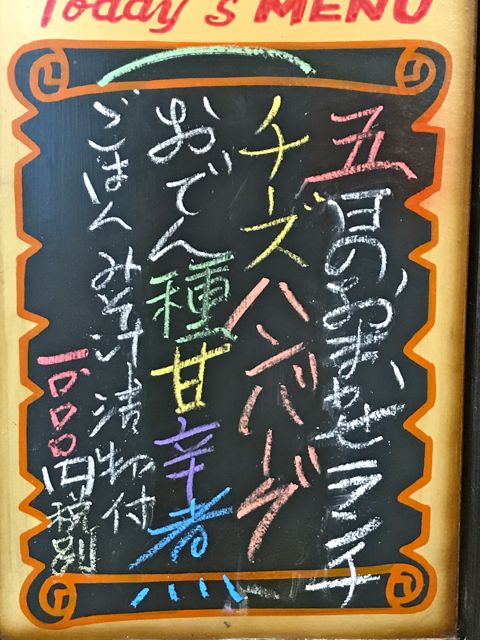 Today's MENU
五日のおまかせランチ
チーズハンバーグ
おでん種甘辛煮
ごはんみそ汁漬物付
一、〇〇〇円税別